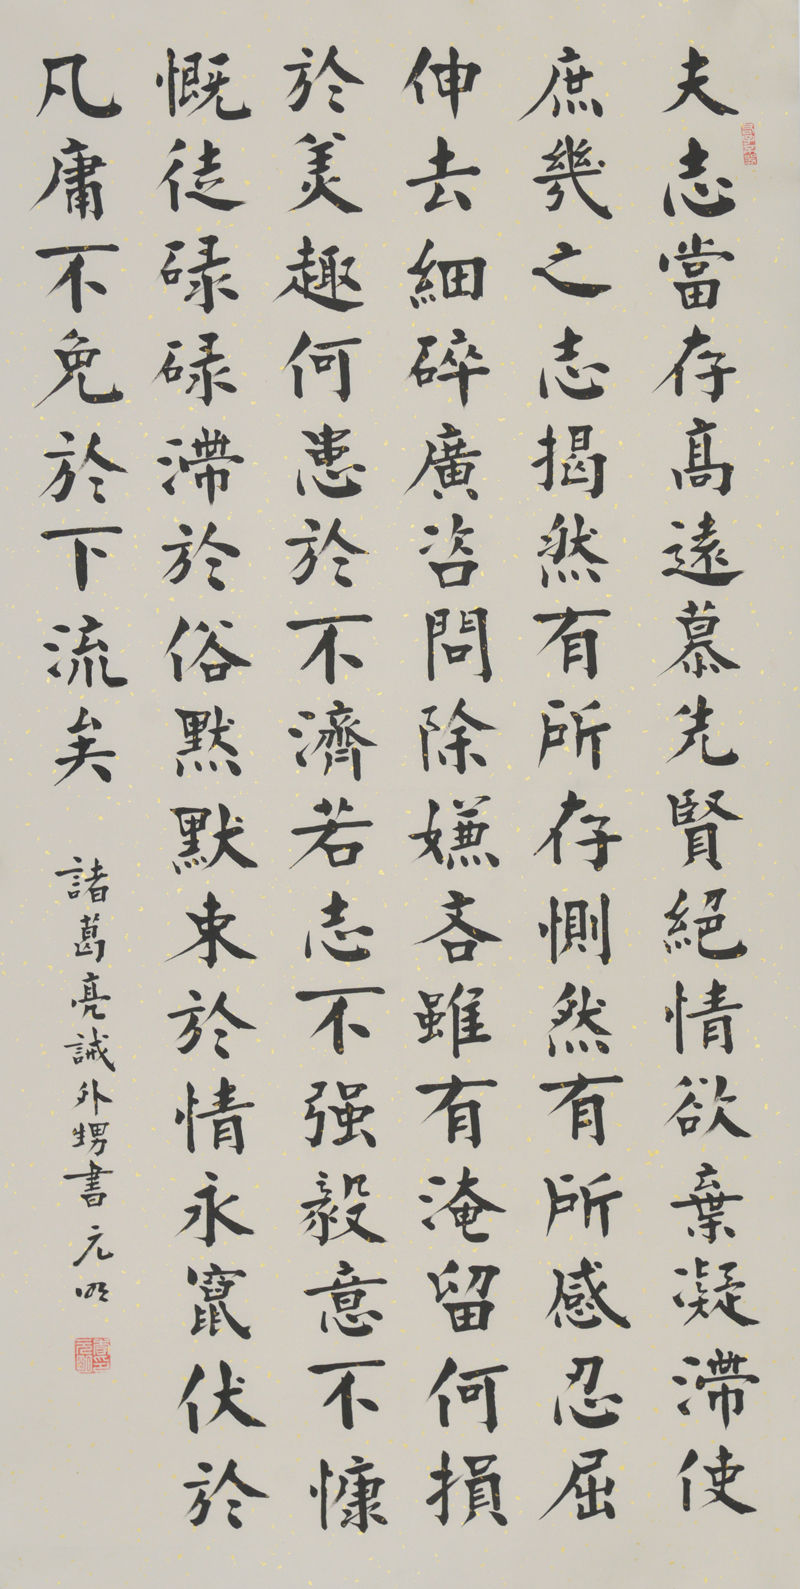 夫志當存高遠慕先賢絕情欲棄凝滯使
庶幾之志揭然有所存惻然有所感忍屈
伸去細碎廣咨問除嫌吝雖有淹留何損
於美趣何患於不濟若志不强毅意不慷
慨徒碌碌滯於俗默默束於情永竄伏於
凡庸不免於下流矣
諸葛亮誡外甥書 元明